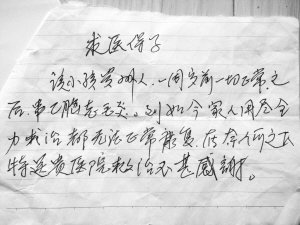 求医保子
该小孩贵州人，一周岁前一切正常，之
后患了脑 到如今家人用尽全
力求治都无法正常康复，在无奈之下
特送贵医院救治不甚感谢。